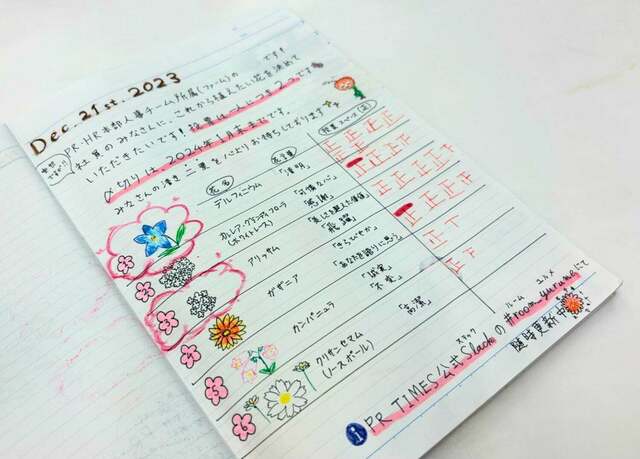 Dec. 21st. 2023
PR・HR本部人事チーム所属(ファーム)の です!
社員のみなさんに、これから植えたい花を決めて
いただきたいです!投票は一人につき2つです
〆切りは、2024年1月末までです。
みなさんの清き二票を心よりお待ちしております
花名 花言葉 投票スペース(正)
1 デルフィニウム 「清明」 正正正正
2 オルレア・グランディフローラ
(ホワイトレース) 「可憐な心」
3 アリッサム 「飛躍」
4 ガザニア 「きらびやか」
「あなたを誇りに思う」
5 カンパニュラ 「誠実」
6 クリサンセマム
(ノースポール) 「高潔」
「誠実」
i PR TIMES公式Slackの#room_yurumeにて
スラック ルーム ユルメ
随時更新中